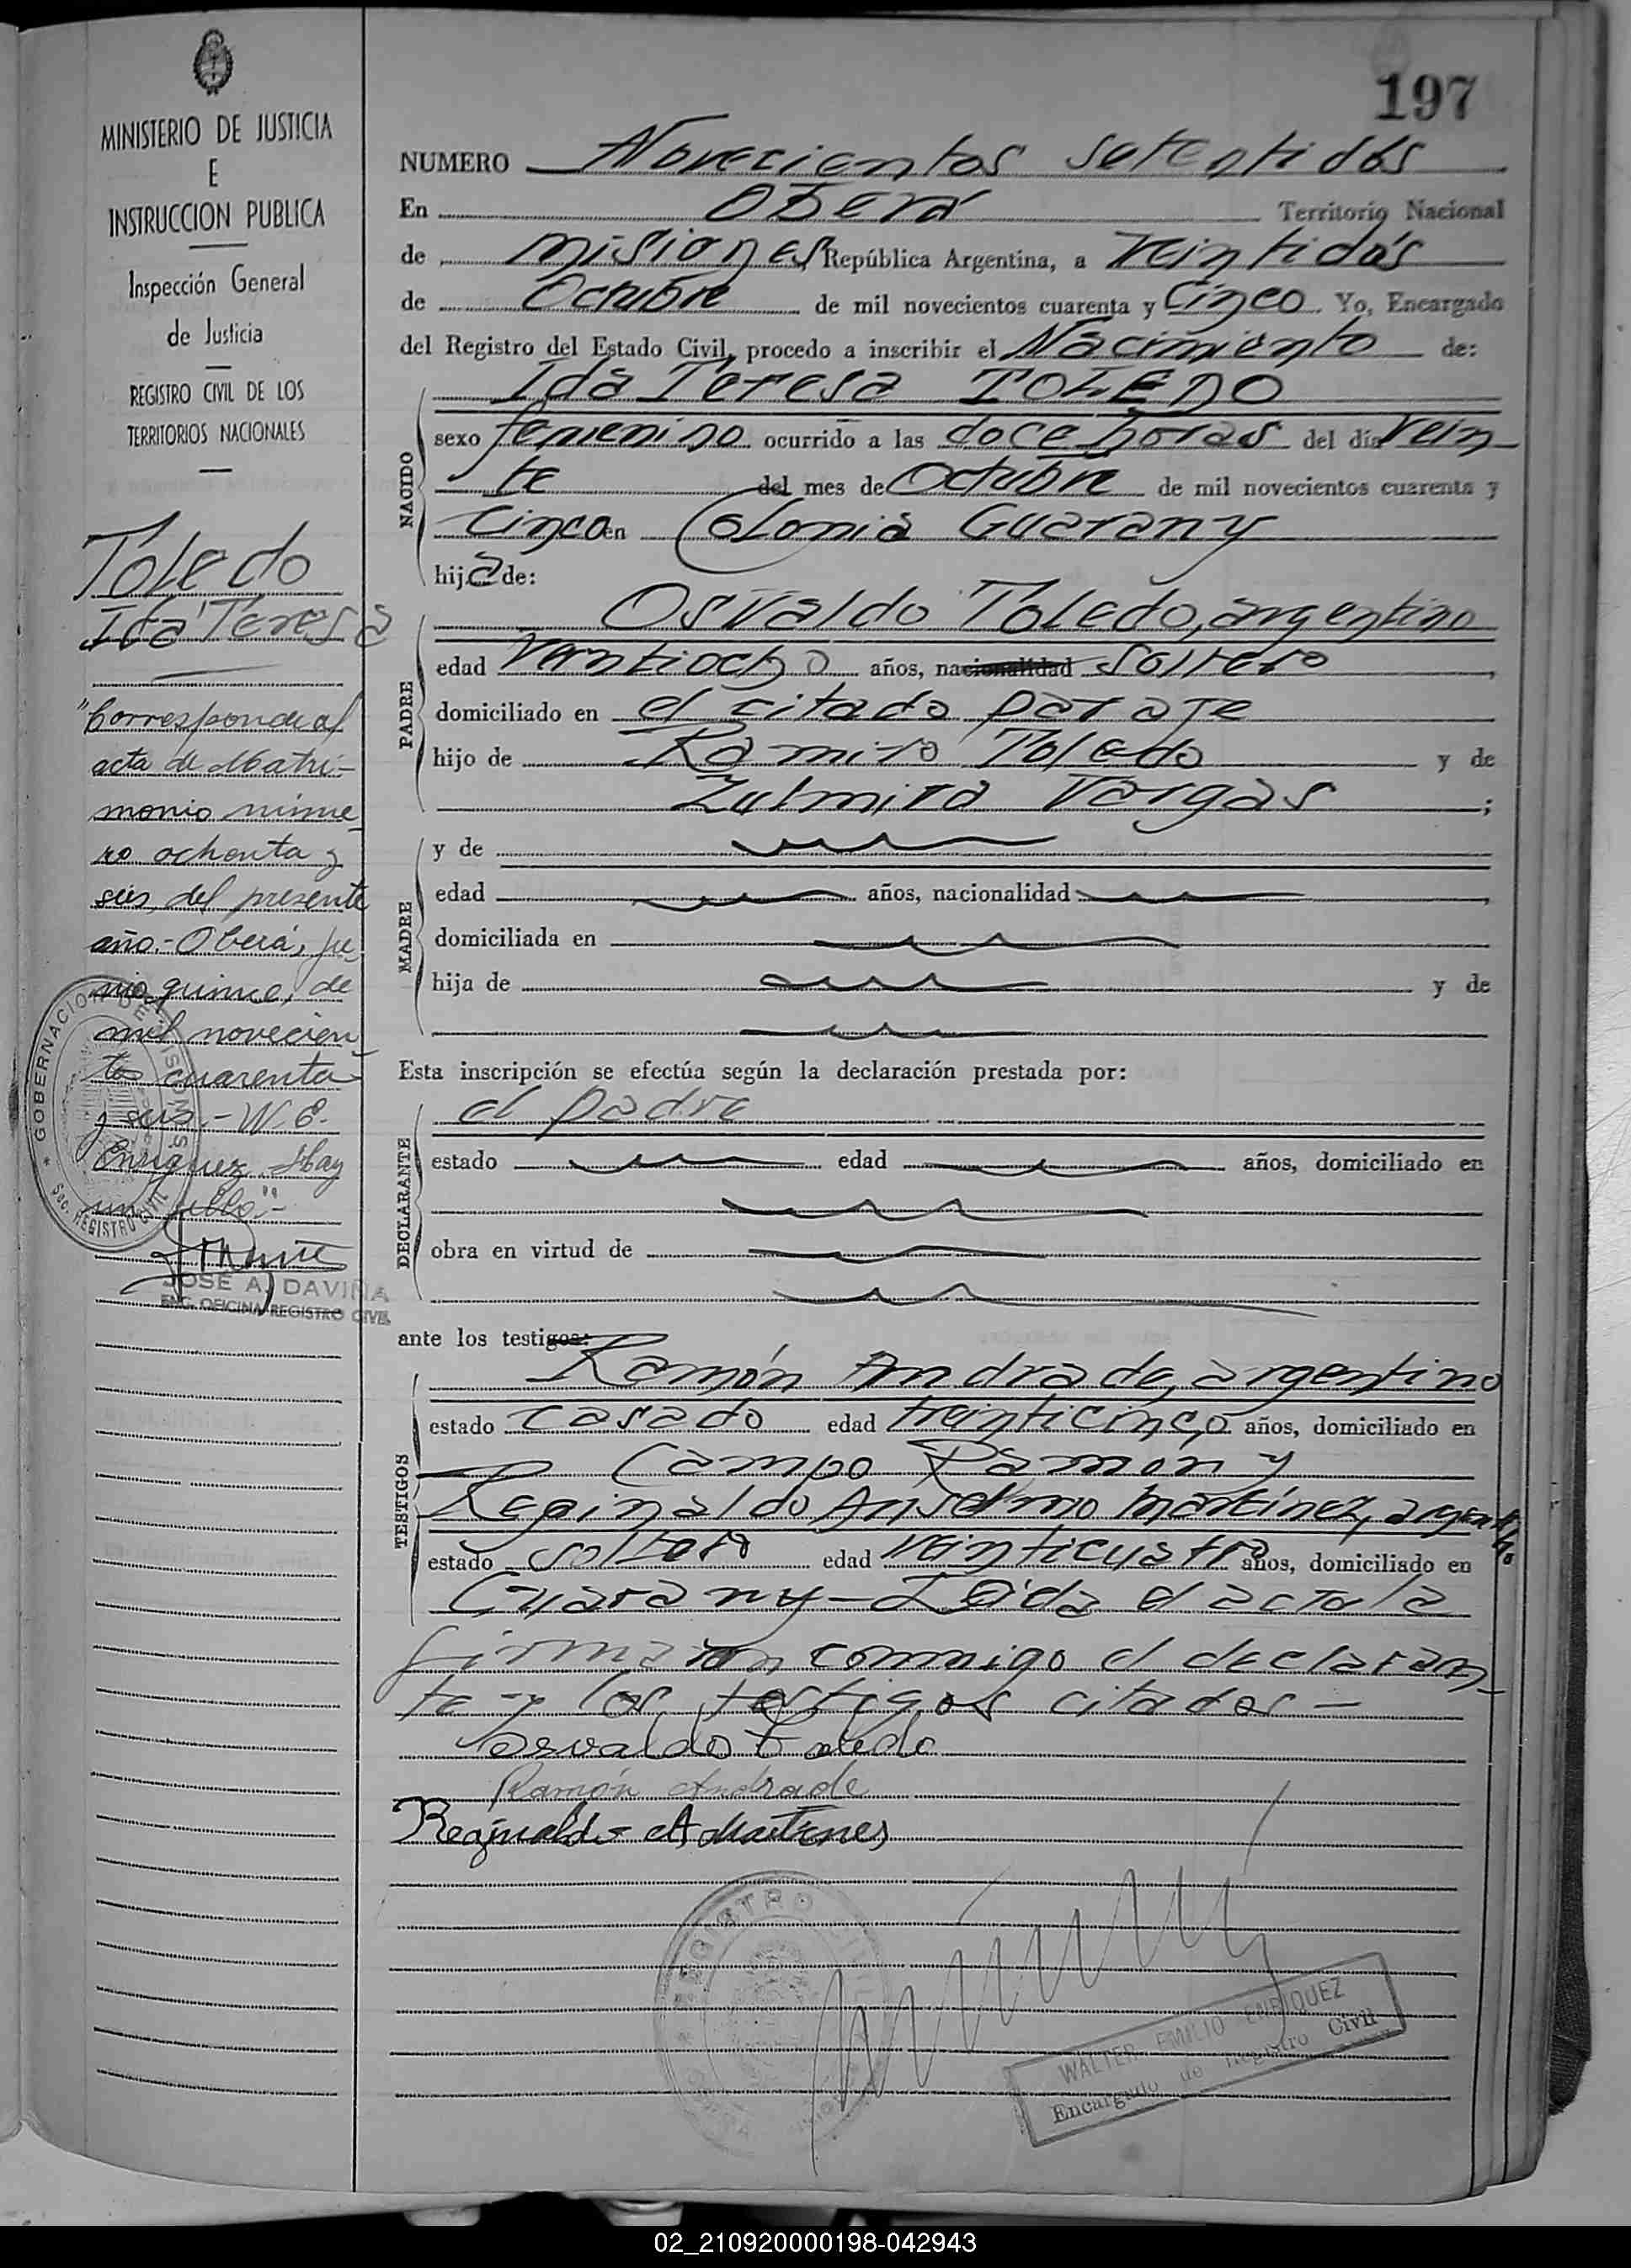 197
MINISTERIO DE JUSTICIA
E
INSTRUCCION PUBLICA
Inspección General
de Justicia
REGISTRO CIVIL DE LOS
TERRITORIOS NACIONALES
Toledo
Ida Teresa
"Corresponde al
acta de Matri-
monio núme-
ro ochenta y
seis, del presente
año.- Oberá, ju-
nio quince, de
mil novecien-
tos cuarenta
y seis.- W. E.
Enriquez. Hay
un sello".-
GOBERNACION DE MISIONES
Sec. REGISTRO CIVIL
JOSÉ A. DAVIÑA
ENC. OFICINA REGISTRO CIVIL
NUMERO Novecientos setentidós
En Oberá Territorio Nacional
de Misiones, República Argentina, a veintidós
de Octubre de mil novecientos cuarenta y cinco. Yo, Encargado
del Registro del Estado Civil, procedo a inscribir el Nacimiento de:
NACIDO
Ida Teresa TOLEDO
sexo femenino ocurrido a las doce horas del día vein
te del mes de Octubre de mil novecientos cuarenta y
cinco en Colonia Guarany
hija de:
PADRE
Osvaldo Toledo, argentino
edad veintiocho años, nacionalidad soltero
domiciliado en el citado paraje
hijo de Ramiro Toledo y de
Zulmira Vargas ;
MADRE
y de
edad años, nacionalidad
domiciliada en
hija de y de
Esta inscripción se efectúa según la declaración prestada por:
DECLARANTE
el padre
estado edad años, domiciliado en
obra en virtud de
ante los testigos:
TESTIGOS
Ramón Andrade, argentino
estado casado edad treinticinco años, domiciliado en
Campo Ramón y
Reginaldo Anselmo Martínez, argentino
estado soltero edad veinticuatro años, domiciliado en
Guarany - Leída el acta la
firmaron conmigo el declaran-
te y los testigos citados -
Osvaldo Toledo
Ramón Andrade
Reginaldo A Martines
REGISTRO CIVIL
WALTER EMILIO ENRIQUEZ
Encargado de Registro Civil
02_210920000198-042943